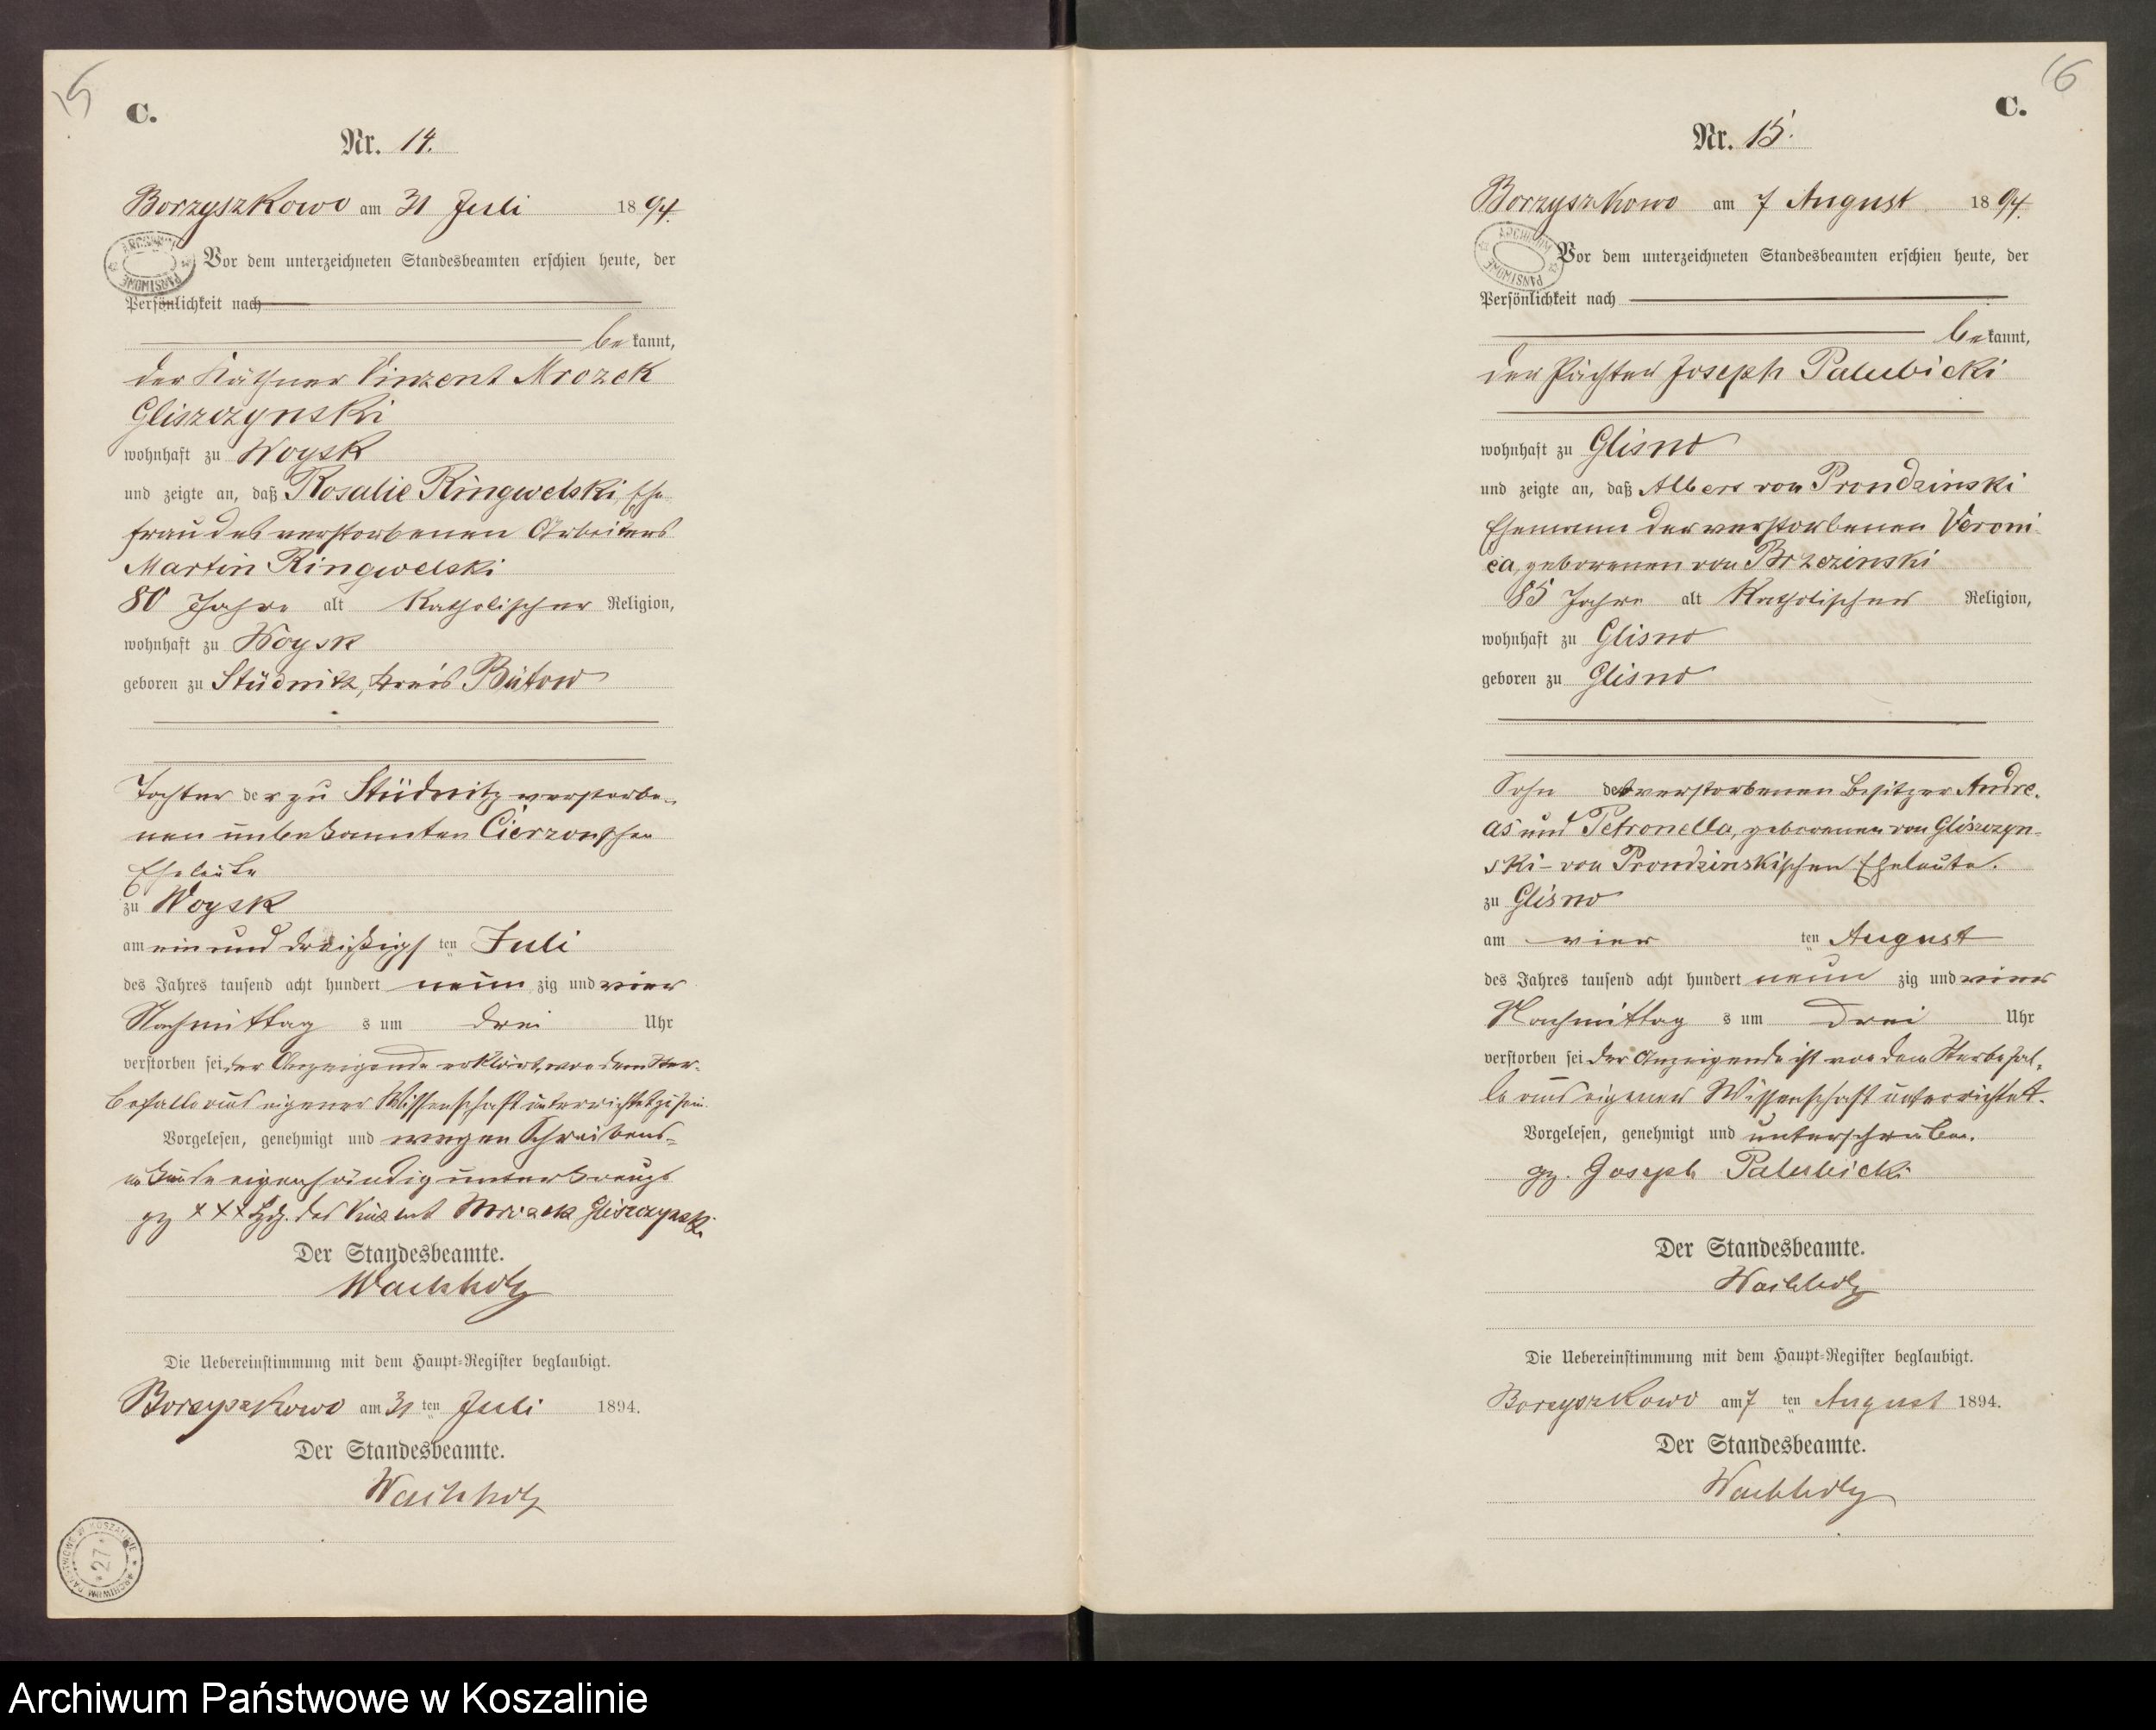 15
C.
Nr. 14.
Borzyszkowo am 31 Juli 1894.
Vor dem unterzeichneten Standesbeamten erschien heute, der
Persönlichkeit nach
bekannt,
der Käthner Vinzent Mrozek
Gliszczynski
wohnhaft zu Woysk
und zeigte an, daß Rosalie Ringwelski, Ehe
frau des verstorbenen Arbeiters
Martin Ringwelski
80 Jahre alt Katholischer Religion,
wohnhaft zu Woysk
geboren zu Stüdnitz, Kreis Bütow
Tochter der zu Stüdnitz verstorbe-
nen unbekannten Cierzonschen
Eheleute
zu Woysk
am ein und dreißigsten Juli
des Jahres tausend acht hundert neunzig und vier
Nachmittags um drei Uhr
verstorben sei, der Anzeigende erklärt, von dem Ster-
befalle aus eigener Wissenschaft unterrichtet zu sein.
Vorgelesen, genehmigt und wegen Schreibens-
unkunde eigenhändig unterkreuzt
gz +++ Hdz. des Vinzent Mrozek Gliszczynski
Der Standesbeamte.
Wachholz
Die Uebereinstimmung mit dem Haupt-Register beglaubigt.
Borzyszkowo am 31ten Juli 1894.
Der Standesbeamte.
Wachholz
ARCHIWUM PAŃSTWOWE W KOSZALINIE
27
16
C.
Nr. 15.
Borzyszkowo am 7 August 1894.
ARCHIWUM
Vor dem unterzeichneten Standesbeamten erschien heute, der
Persönlichkeit nach
bekannt,
der Pächter Joseph Palubicki
wohnhaft zu Glisno
und zeigte an, daß Albert von Prondzinski
Ehemann der verstorbenen Veroni
ca, geborenen von Brzezinski
85 Jahre alt Katholischer Religion,
wohnhaft zu Glisno
geboren zu Glisno
Sohn der verstorbenen Besitzer Andre-
as und Petronella, geborenen von Gliszczyn-
ski - von Prondzinskischen Eheleute.
zu Glisno
am vierten August
des Jahres tausend acht hundert neunzig und vier
Nachmittags um drei Uhr
verstorben sei der Anzeigende ist von dem Sterbefal-
le aus eigener Wissenschaft unterrichtet.
Vorgelesen, genehmigt und unterschrieben.
gz. Joseph Palubicki
Der Standesbeamte.
Wachholz
Die Uebereinstimmung mit dem Haupt-Register beglaubigt.
Borzyszkowo am 7ten August 1894.
Der Standesbeamte.
Wachholz
Archiwum Państwowe w Koszalinie